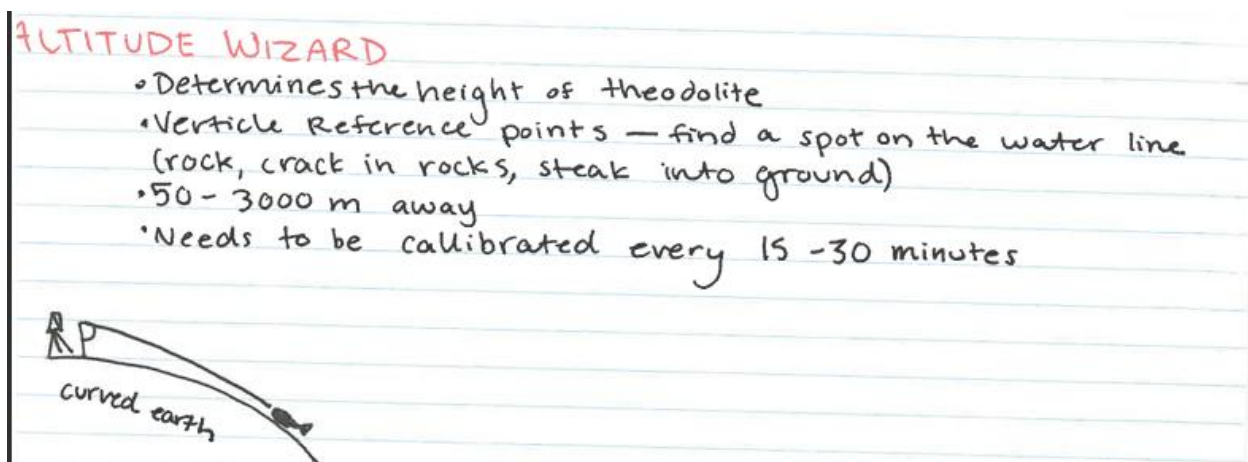 ALTITUDE WIZARD
• Determines the height of theodolite
• Verticle Reference points — find a spot on the water line
(rock, crack in rocks, steak into ground)
• 50 - 3000 m away
• Needs to be callibrated every 15 - 30 minutes
curved earth